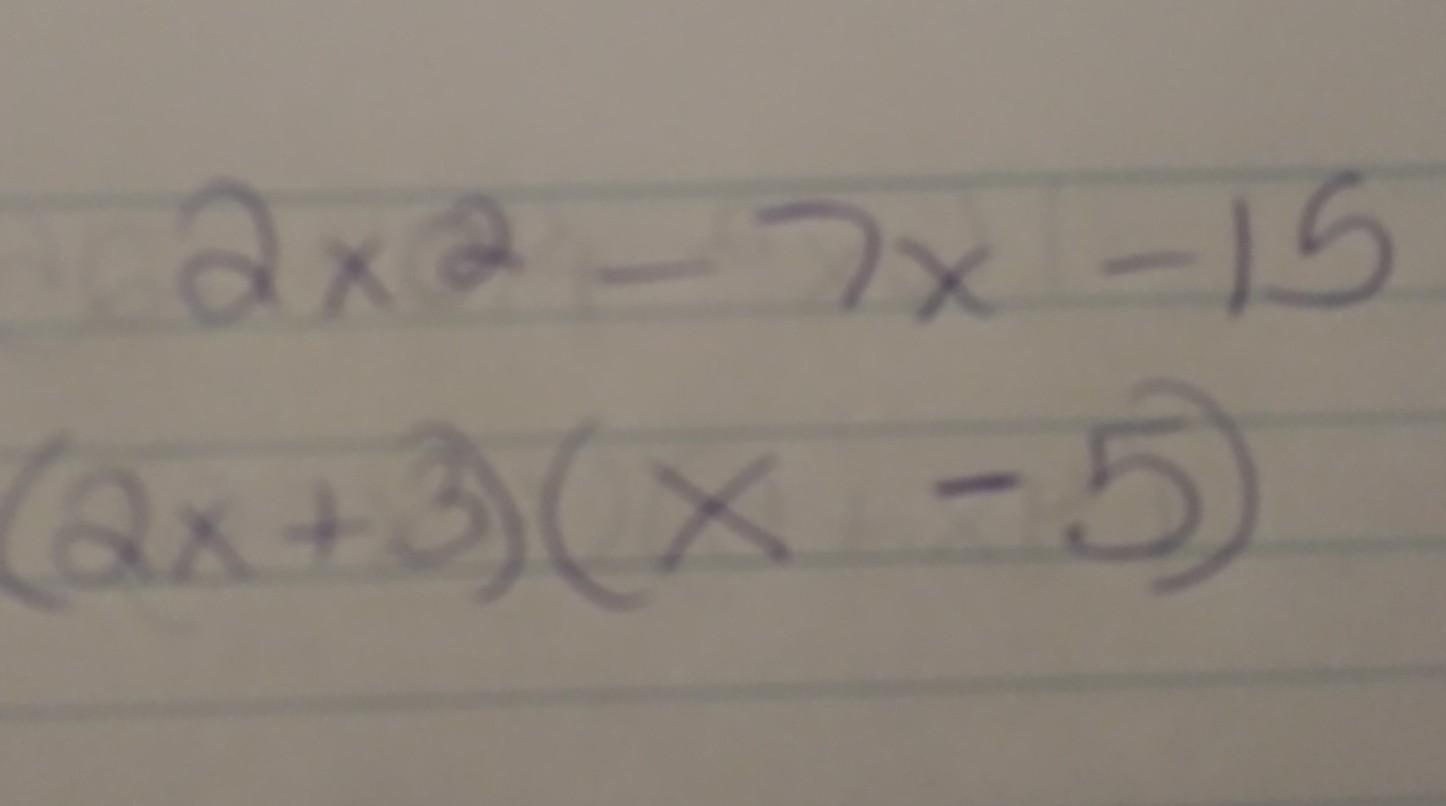 2x2 - 7x - 15
(2x+3)(x - 5)